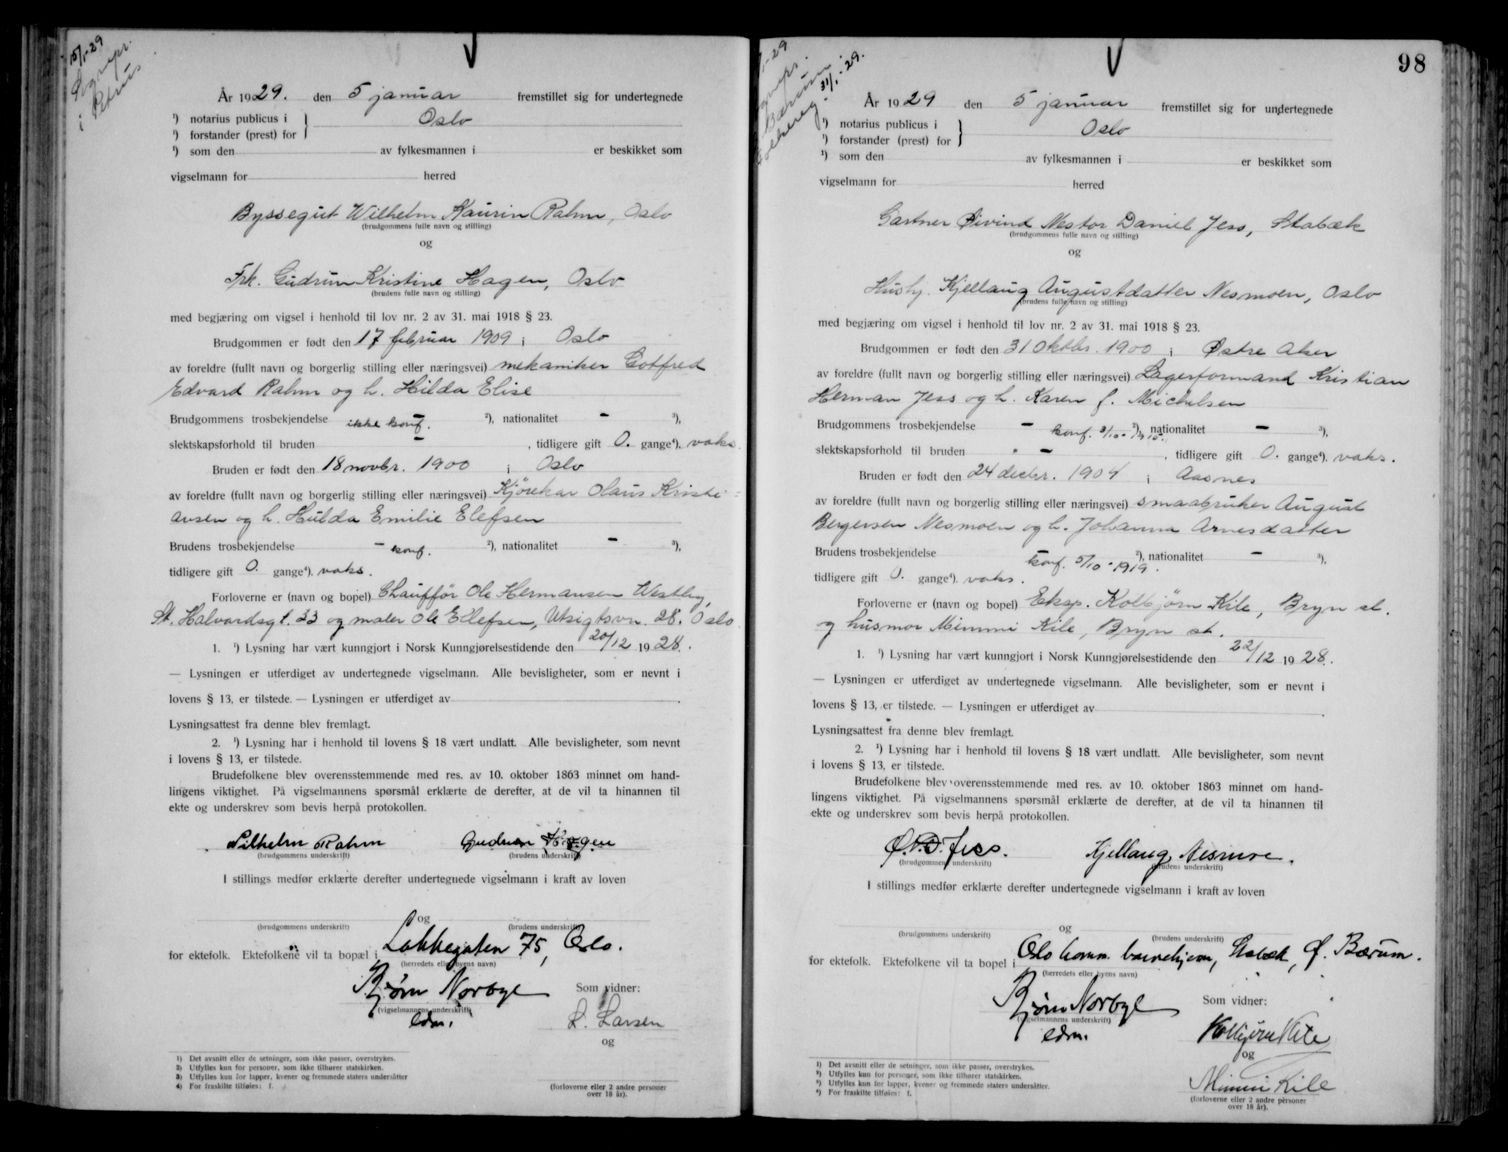 15/1-29
Sogнepr.
i Petrus
År 1929. den 5 januar fremstillet sig for undertegnede
¹) notarius publicus i } Oslo
¹) forstander (prest) for
¹) som den av fylkesmannen i er beskikket som
vigselmann for herred
Byssegut Wilhelm Kaurin Rahm, Oslo
(brudgommens fulle navn og stilling)
og
Frk. Gudrun Kristine Hagen, Oslo
(brudens fulle navn og stilling)
med begjæring om vigsel i henhold til lov nr. 2 av 31. mai 1918 § 23.
Brudgommen er født den 17 februar 1909 i Oslo
av foreldre (fullt navn og borgerlig stilling eller næringsvei) mekaniker Gotfred
Edvard Rahm og h. Hilda Elise
Brudgommens trosbekjendelse ikke konf. ²), nationalitet - ³),
slektskapsforhold til bruden - , tidligere gift 0. gange⁴). vaks.
Bruden er født den 18 novbr. 1900 i Oslo
av foreldre (fullt navn og borgerlig stilling eller næringsvei) Kjørekar Olaus Kristi-
ansen og h. Hulda Emilie Elefsen
Brudens trosbekjendelse - konf. ²), nationalitet - ³),
tidligere gift 0. gange⁴). vaks.
Forloverne er (navn og bopel) Chauffør Ole Hermansen Westby,
St. Halvardsgt. 33 og maler Ole Ellefsen, Utsigtsvn. 28. Oslo
1. ¹) Lysning har vært kunngjort i Norsk Kunngjørelsestidende den 20/12 1928.
— Lysningen er utferdiget av undertegnede vigselmann. Alle bevisligheter, som er nevnt i
lovens § 13, er tilstede. — Lysningen er utferdiget av .
Lysningsattest fra denne blev fremlagt.
2. ¹) Lysning har i henhold til lovens § 18 vært undlatt. Alle bevisligheter, som nevnt
i lovens § 13, er tilstede.
Brudefolkene blev overensstemmende med res. av 10. oktober 1863 minnet om hand-
lingens viktighet. På vigselmannens spørsmål erklærte de derefter, at de vil ta hinannen til
ekte og underskrev som bevis herpå protokollen.
Wilhelm Rahm Gudrun Hagen
(brudgommens underskrift) (brudens underskrift)
I stillings medfør erklærte derefter undertegnede vigselmann i kraft av loven
og
(brudgommens underskrift) (brudens underskrift)
for ektefolk. Ektefolkene vil ta bopæl i Lakkegaten 75, Oslo.
(herredets eller byens navn)
Bjørn Norbye Som vidner:
(vigselmannens underskrift)
edm. L. Larsen
og
¹) Det avsnitt eller de setninger, som ikke passer, overstrykes.
²) Utfylles kun for personer, som ikke tilhører statskirken.
³) Utfylles kun for lapper, kvener og fremmede staters undersåtter
⁴) For fraskilte tilføies: f.
(forloverne eller 2 andre personer
over 18 år).
98
31/1-29.
År 1929 den 5 januar fremstillet sig for undertegnede
¹) notarius publicus i } Oslo
¹) forstander (prest) for
¹) som den av fylkesmannen i er beskikket som
vigselmann for herred
Gartner Øivind Nestor Daniel Jess, Stabæk
(brudgommens fulle navn og stilling)
og
Husbj. Kjellaug Augustdatter Nesmoen, Oslo
(brudens fulle navn og stilling)
med begjæring om vigsel i henhold til lov nr. 2 av 31. mai 1918 § 23.
Brudgommen er født den 31 oktbr. 1900 i Østre Aker
av foreldre (fullt navn og borgerlig stilling eller næringsvei) Lagerformand Kristian
Herman Jess og h. Karen f. Michelsen
Brudgommens trosbekjendelse - konf. ²), nationalitet - ³),
slektskapsforhold til bruden - , tidligere gift 0. gange⁴). vaks.
Bruden er født den 24 decbr. 1904 i Aasnes
av foreldre (fullt navn og borgerlig stilling eller næringsvei) smaabruker August
Bergersen Nesmoen og h. Johanna Arnesdatter
Brudens trosbekjendelse - konf. 5/10-1919. ²), nationalitet - ³),
tidligere gift 0. gange⁴). vaks.
Forloverne er (navn og bopel) Eksp. Kolbjørn Kile, Bryn st.
og husmor Mimmi Kile, Bryn st.
1. ¹) Lysning har vært kunngjort i Norsk Kunngjørelsestidende den 22/12 1928.
— Lysningen er utferdiget av undertegnede vigselmann. Alle bevisligheter, som er nevnt i
lovens § 13, er tilstede. — Lysningen er utferdiget av .
Lysningsattest fra denne blev fremlagt.
2. ¹) Lysning har i henhold til lovens § 18 vært undlatt. Alle bevisligheter, som nevnt
i lovens § 13, er tilstede.
Brudefolkene blev overensstemmende med res. av 10. oktober 1863 minnet om hand-
lingens viktighet. På vigselmannens spørsmål erklærte de derefter, at de vil ta hinannen til
ekte og underskrev som bevis herpå protokollen.
Ø.N.D. Jess. Kjellaug Nesmoe.
(brudgommens underskrift) (brudens underskrift)
I stillings medfør erklærte derefter undertegnede vigselmann i kraft av loven
og
(brudgommens underskrift) (brudens underskrift)
for ektefolk. Ektefolkene vil ta bopel i Oslo komm. barnehjem, Stabæk, Ø. Bærum.
(herredets eller byens navn)
Bjørn Norbye Som vidner:
(vigselmannens underskrift)
edm. Kolbjørn Kile
og
Mimmi Kile
¹) Det avsnitt eller de setninger, som ikke passer, overstrykes.
²) Utfylles kun for personer, som ikke tilhører statskirken.
³) Utfylles kun for lapper, kvener og fremmede staters undersåtter.
⁴) For fraskilte tilføies: f.
(forloverne eller 2 andre personer
over 18 år).